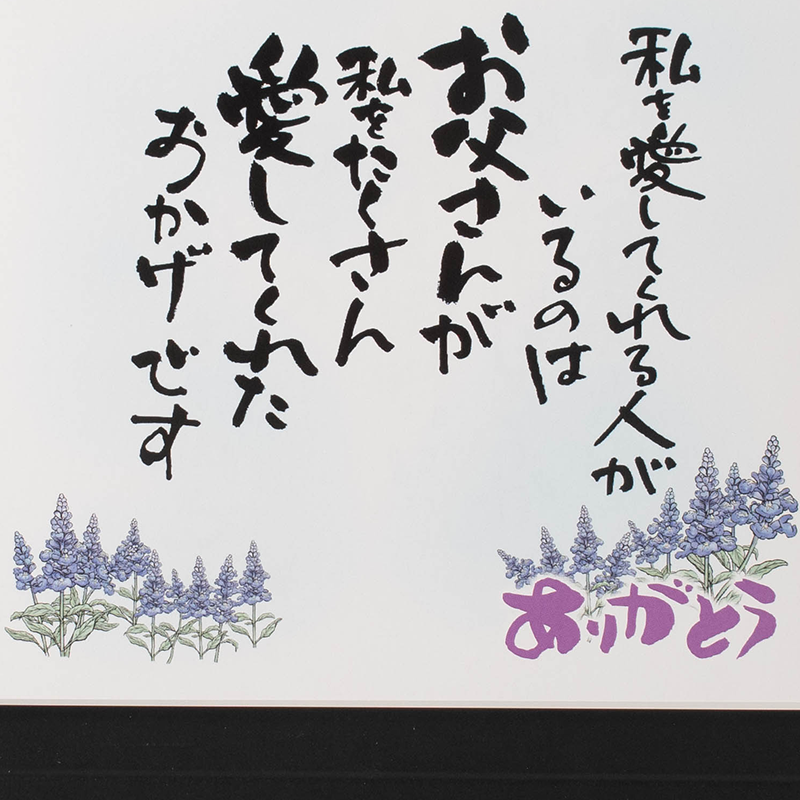 私を愛してくれる人が
いるのは
お父さんが
私をたくさん
愛してくれた
おかげです
ありがとう